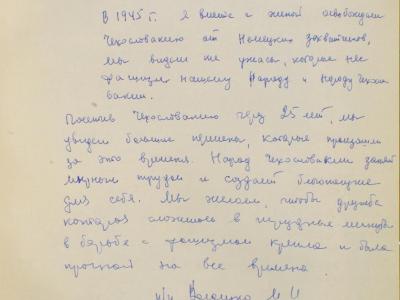 В 1945 г. я вместе с женой освобождали
Чехословакию от Немецких захватчиков,
мы видели те ужасы, которые нес
фашизм нашему Народу и Народу Чехосло
вакии.
Посетив Чехословакию через 25 лет, мы
увидели большие перемены, которые произошли
за это время. Народ Чехословакии занят
мирным трудом и создает благополучие
для себя. Мы желаем, чтобы дружба
которая сложилось в трудные минуты
в борьбе с фашизмом крепла и была
прочной на все времена
п/п